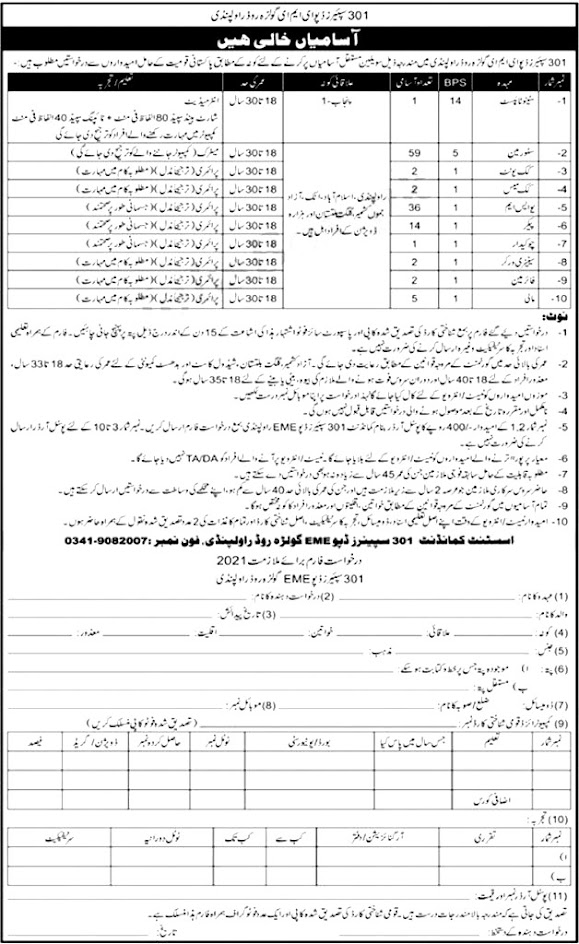 301 سپئیرز ڈپو ای ایم ای گولڑہ روڈ راولپنڈی
آسامیاں خالی ہیں
301 سپئیرز ڈپو ای ایم ای گولڑہ روڈ راولپنڈی میں مندرجہ ذیل سویلین مستقل آسامیاں پر کرنے کے لئے کوٹہ کے مطابق پاکستانی قومیت کے حامل امیدواروں سے درخواستیں مطلوب ہیں۔
نمبر شمار عہدہ BPS تعداد آسامی علاقائی کوٹہ عمر کی حد تعلیم / تجربہ
1- سٹینو ٹائپسٹ 14 1 پنجاب-1 18 تا 30 سال انٹرمیڈیٹ
شارٹ ہینڈ سپیڈ 80 الفاظ فی منٹ + ٹائپنگ سپیڈ 40 الفاظ فی منٹ
کمپیوٹر میں مہارت رکھنے والے افراد کو ترجیح دی جائے گی
2- سٹورمین 5 59 18 تا 30 سال میٹرک (کمپیوٹر جاننے والے کو ترجیح دی جائے گی)
3- کک یونٹ 1 2 18 تا 30 سال پرائمری (ترجیحاً مڈل) (مطلوبہ کام میں مہارت)
4- کک میس 1 2 18 تا 30 سال پرائمری (ترجیحاً مڈل) (مطلوبہ کام میں مہارت)
5- یو ایس ایم 1 36 18 تا 30 سال پرائمری (ترجیحاً مڈل) (جسمانی طور پر صحتمند)
6- پیکر 1 14 18 تا 30 سال پرائمری (ترجیحاً مڈل) (جسمانی طور پر صحتمند)
7- چوکیدار 1 1 18 تا 30 سال پرائمری (ترجیحاً مڈل) (جسمانی طور پر صحتمند)
8- سینیٹری ورکر 1 2 18 تا 30 سال پرائمری (ترجیحاً مڈل) (مطلوبہ کام میں مہارت)
9- فائرمین 1 2 18 تا 30 سال پرائمری (ترجیحاً مڈل) (مطلوبہ کام میں مہارت)
10- مالی 1 5 18 تا 30 سال پرائمری (ترجیحاً مڈل) (مطلوبہ کام میں مہارت)
راولپنڈی، اسلام آباد، اٹک، آزاد
جموں کشمیر، گلگت بلتستان اور ہزارہ
ڈویژن کے افراد اہل ہیں۔
نوٹ:
1- درخواستیں دیے گئے فارم پر بمع شناختی کارڈ کی تصدیق شدہ کاپی اور پاسپورٹ سائز فوٹو اشتہار ہذا کی اشاعت کے 15 دن کے اندر درج ذیل پتہ پر پہنچ جانی چاہئیں۔ فارم کے ہمراہ تعلیمی
اسناد اور تجربہ کا سرٹیفکیٹ وغیرہ ارسال کرنے کی ضرورت نہیں ہے۔
2- عمر کی بالائی حد میں گورنمنٹ کے مروجہ قوانین کے مطابق رعایت دی جائے گی۔ آزاد کشمیر، گلگت بلتستان، شیڈول کاسٹ اور بدھسٹ کمیونٹی کے لئے عمر کی رعایتی حد 18 تا 33 سال،
معذور افراد کے لئے 18 تا 40 سال اور دوران سروس فوت ہونے والے ملازم کی بیوہ، بیٹی یا بیٹے کے لئے 18 تا 35 سال ہوگی۔
3- موزوں امیدواروں کو ٹیسٹ / انٹرویو کے لئے کال کیا جائے گا لہٰذا درخواست پر اپنا موبائل نمبر درست لکھیں۔
4- نامکمل اور مقررہ تاریخ کے بعد موصول ہونے والی درخواستیں قابل قبول نہیں ہوں گی۔
5- نمبر شمار 1،2 کے امیدوار -/400 روپے کا پوسٹل آرڈر بنام کمانڈنٹ 301 سپئیرز ڈپو EME راولپنڈی بمع درخواست فارم ارسال کریں۔ نمبر شمار 3 تا 10 کے لئے پوسٹل آرڈر ارسال
کرنے کی ضرورت نہیں ہے۔
6- معیار پر پورا اترنے والے امیدواروں کو ٹیسٹ / انٹرویو کے لئے بلایا جائے گا۔ ٹیسٹ / انٹرویو پر آنے والے افراد کو TA/DA نہیں دیا جائے گا۔
7- مطلوبہ قابلیت کے حامل سابقہ فوجی ملازمین جن کی عمر 45 سال سے زیادہ نہ ہو بھی درخواستیں دے سکتے ہیں۔
8- حاضر سروس سرکاری ملازمین جو عرصہ 2 سال سے زیر ملازمت ہیں اور جن کی عمر کی بالائی حد 40 سال سے کم ہو، اپنے محکمے کی وساطت سے درخواستیں ارسال کریں۔
9- تمام آسامیوں میں گورنمنٹ کے مروجہ قوانین کے مطابق خواتین، اقلیتوں اور معذور افراد کا کوٹہ مختص ہوگا۔
10- امیدوار ٹیسٹ / انٹرویو کے وقت اپنے اصل تعلیمی اسناد، ڈومیسائل، تجربہ کا سرٹیفکیٹ، اصل شناختی کارڈ اور تمام کاغذات کی 2 عدد تصدیق شدہ نقول کے ہمراہ حاضر ہوں۔
اسسٹنٹ کمانڈنٹ 301 سپیئرز ڈپو EME گولڑہ روڈ راولپنڈی، فون نمبر : 0341-9082007
درخواست فارم برائے ملازمت 2021
301 سپئیرز ڈپو EME گولڑہ روڈ راولپنڈی
(1) عہدہ کا نام: (2) درخواست دہندہ کا نام:
والد کا نام: (3) تاریخ پیدائش:
(4) کوٹہ: علاقائی: خواتین: اقلیت: معذور:
(5) جنس: مذہب:
(6) پتہ: ا) موجودہ پتہ جس پر خط و کتابت ہو سکے:
ب) مستقل پتہ:
(7) ڈومیسائل: ضلع / صوبہ کا نام: (8) موبائل نمبر:
(9) کمپیوٹرائزڈ قومی شناختی کارڈ نمبر: (تصدیق شدہ فوٹو کاپی منسلک کریں)
نمبر شمار تعلیم جس سال میں پاس کیا بورڈ / یونیورسٹی ٹوٹل نمبر حاصل کردہ نمبر ڈویژن / گریڈ فیصد
اضافی کورس
(10) تجربہ:
نمبر شمار تقرری آرگنائزیشن / دفتر کب سے کب تک ٹوٹل دورانیہ سرٹیفکیٹ
ا)
ب)
(11) پوسٹل آرڈر نمبر اور قیمت:
تصدیق کی جاتی ہے کہ مندرجہ بالا مندرجات درست ہیں۔ قومی شناختی کارڈ کی تصدیق شدہ کاپی اور ایک عدد فوٹو گراف ہمراہ فارم ہذا منسلک ہے۔
درخواست دہندہ کے دستخط: تاریخ: